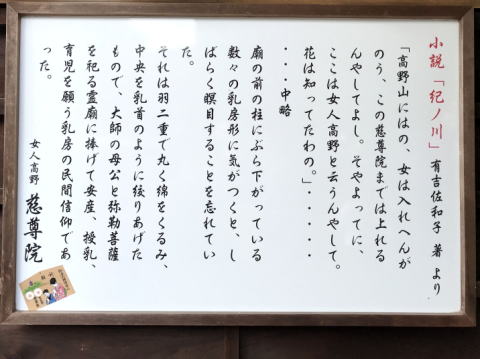 小説「紀ノ川」有吉佐和子 著 より
「高野山にはの、女は入れへんが
のう、この慈尊院までは上れる
んやしてよし。そやよってに、
ここは女人高野と云うんやして。
花は知ってたわの。」・・・・・
・・・中略
廟の前の柱にぶら下がっている
数々の乳房形に気がつくと、し
ばらく瞑目することを忘れてい
た。
それは羽二重で丸く綿をくるみ、
中央を乳首のように絞りあげた
もので、大師の母公と弥勒菩薩
を祀る霊廟に捧げて安産、授乳、
育児を願う乳房の民間信仰であ
った。
女人高野 慈尊院